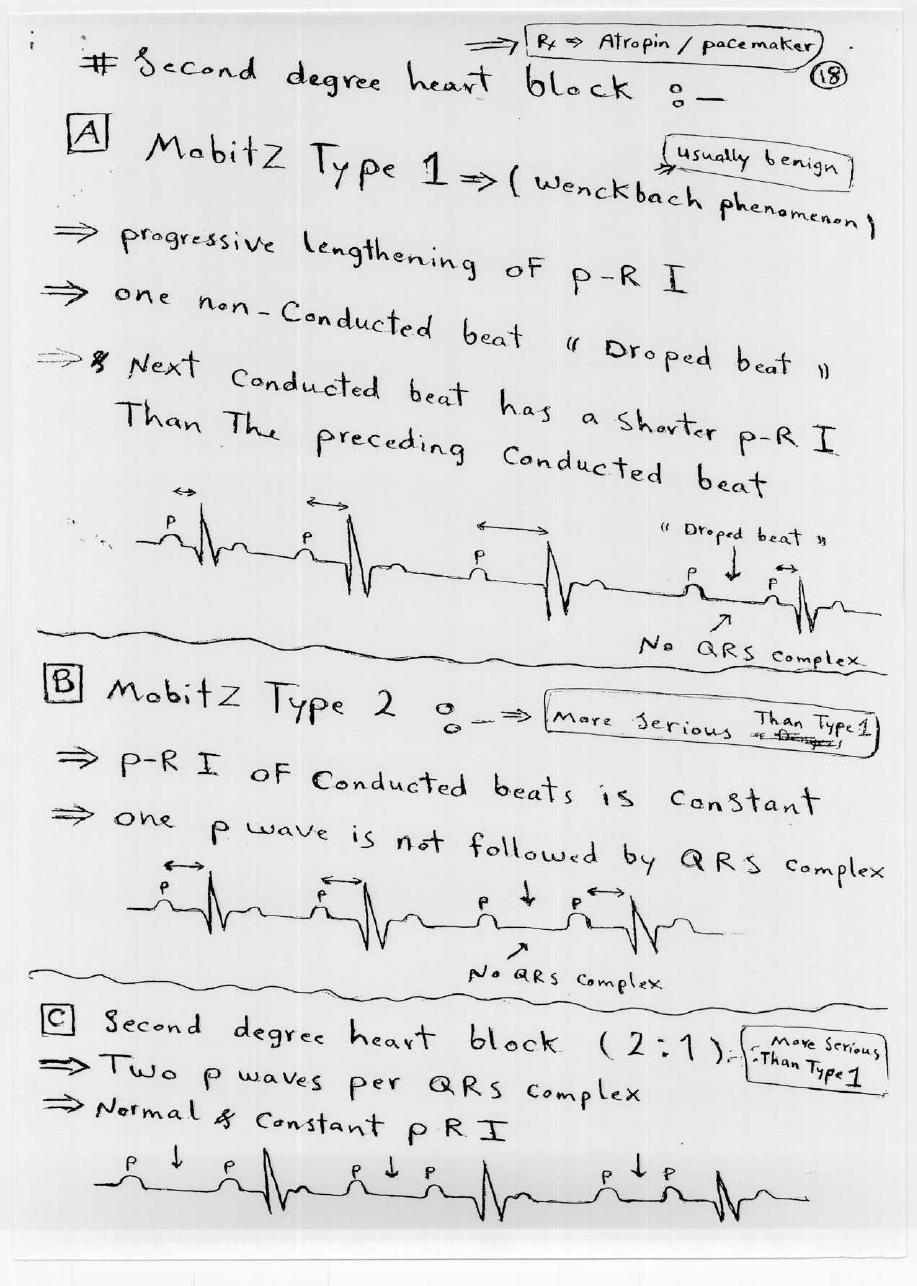 ⇒ Rx ⇒ Atropin / pacemaker
18
# Second degree heart block :-
A Mobitz Type 1 ⇒ ( Wenckbach phenomenon )
⇒ usually benign
⇒ progressive lengthening of p-R I
⇒ one non-Conducted beat " Droped beat "
⇒ & Next Conducted beat has a Shorter p-R I
Than The preceding Conducted beat
P P P P P
" Droped beat "
No QRS Complex
B Mobitz Type 2 :- ⇒ More Serious Than Type 1
⇒ p-R I of Conducted beats is Constant
⇒ one p wave is not followed by QRS complex
P P P P
No QRS Complex
C Second degree heart block (2:1) :- More Serious
Than Type 1
⇒ Two p waves per QRS complex
⇒ Normal & Constant p R I
P P P P P P